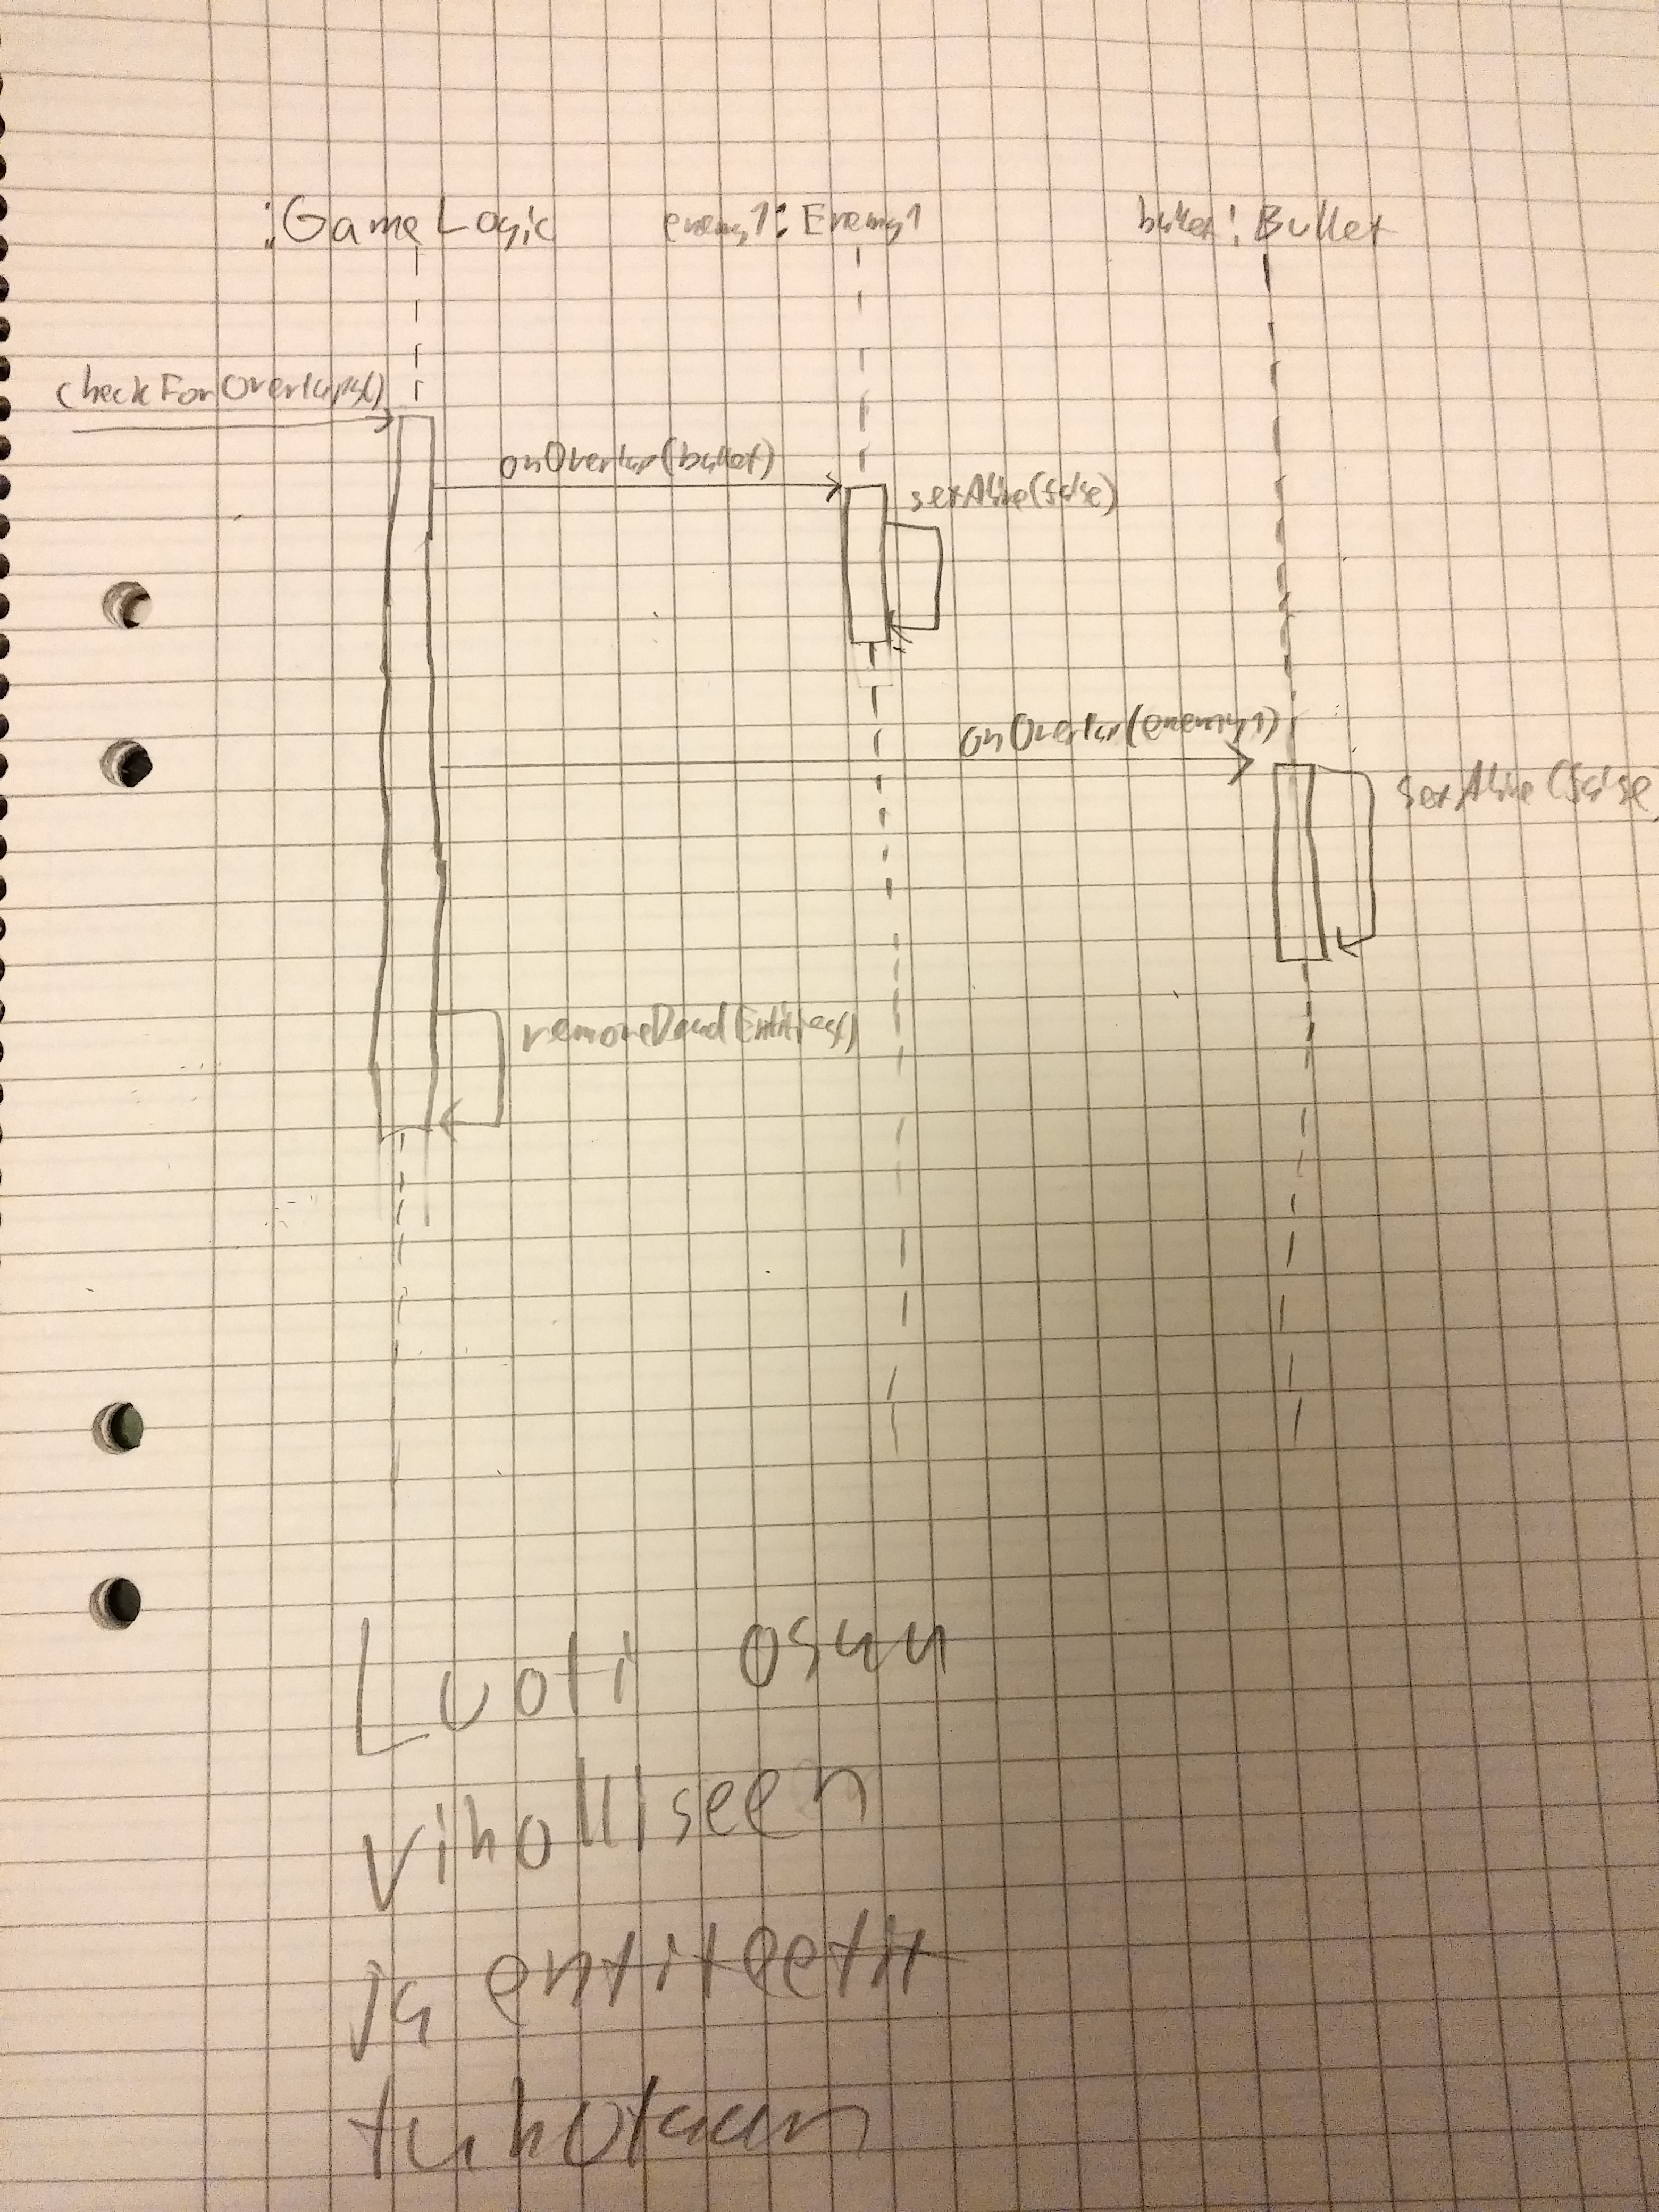 :GameLogic enemy1:Enemy1 bullet:Bullet
checkForOverlaps()
onOverlap(bullet)
setAlive(false)
onOverlap(enemy1)
setAlive(false
removeDeadEntities()
Luoti osuu
viholliseen
ja entiteetit
tuhotaan